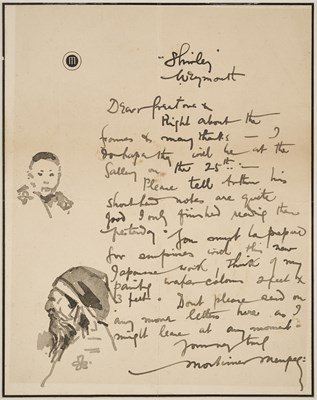 "Shirley"
Weymouth
Dear
Right about the
frames & many thanks — I
they will be at the
on the 25th —
Please tell Arthur his
shorthand notes are quite
good I only finished reading them
yesterday. You must be prepared
for surprises with this new
Japanese work, think of my
painting water colours 2 feet x
3 feet. Dont please send on
any more letters here as I
might leave at any moment.
Mortimer Menpes: